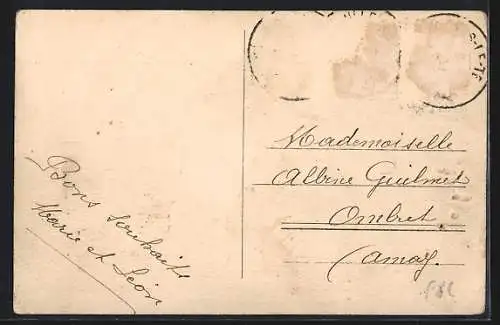 Bons souhaits
Marie et Léon
Mademoiselle
Albine Guilmet
Ombret
(Amay).